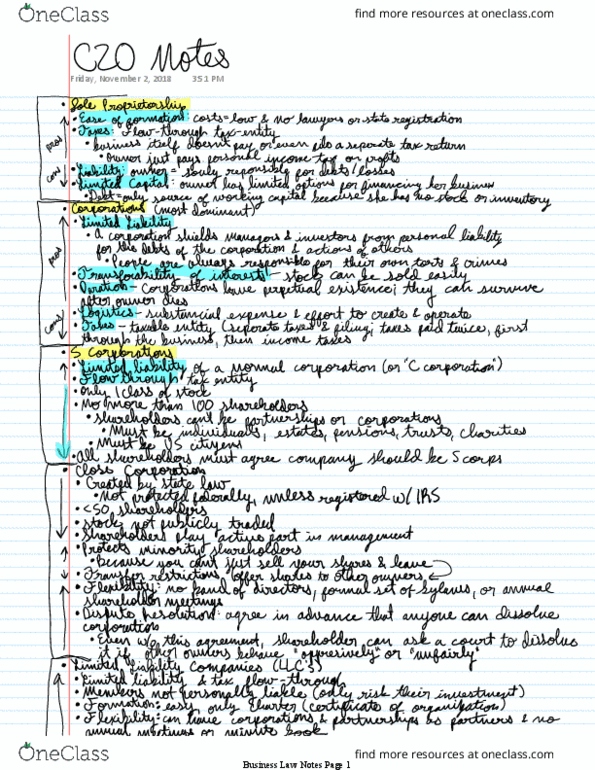 OneClass
find more resources at oneclass.com
C20 Notes
Friday, November 2, 2018 3:51 PM
• Sole Proprietorship
• Ease of formation: costs=low & no lawyers or state registration
• Taxes: Flow-through tax-entity
• business itself doesn't pay or even file a separate tax return
• owner just pays personal income tax on profits
• Liability: owner = solely responsible for debts/losses
• Limited Capital: owner has limited options for financing her business
• Debt=only source of working capital because she has no stock or inventory
pros
cons
• Corporations (most dominant)
• Limited Liability
• A corporation shields managers & investors from personal liability
for the debts of the corporation & actions of others
• People are always responsible for their own torts & crimes
• Transferability of interest - stock can be sold easily
• Duration - corporations have perpetual existence; they can survive
after owner dies
• Logistics - substancial expense & effort to create & operate
• Taxes - taxable entity (seperate taxes & filing; taxes paid twice, first
through the business, then income taxes
pros
cons
• S Corporations
• Limited liability of a normal corporation (or "C corporation")
• Flow through tax entity
• Only 1 class of stock
• No more than 100 shareholders
• shareholders can't be partnerships or corporations
• Must be individuals, estates, pensions, trusts, charities
• Must be US citizens
• All shareholders must agree company should be S corps
• Close Corporation
• Created by state law
• Not protected federally, unless registered w/ IRS
• <50 shareholders
• stock not publicly traded
• Shareholders play active part in management
• Protects minority shareholders
• because you can't just sell your shares & leave
• Transfer restrictions (offer shares to other owners)
• Flexibility: no board of directors, formal set of bylaws, or annual
shareholder meetings
• Dispute Resolution: agree in advance that anyone can dissolve
corporation
• Even w/o this agreement, shareholder can ask a court to dissolve
it if other owners behave "oppresively" or "unfairly"
• Limited Liability Companies (LLC's)
• Limited liability & tax flow-through
• Members not personally liable (only risk their investment)
• Formation: easy only Charter (certificate of organization)
• Flexibility: can have corporations & partnerships as partners & no
annual meetings or minute book
OneClass
find more resources at oneclass.com
Business Law Notes Page 1